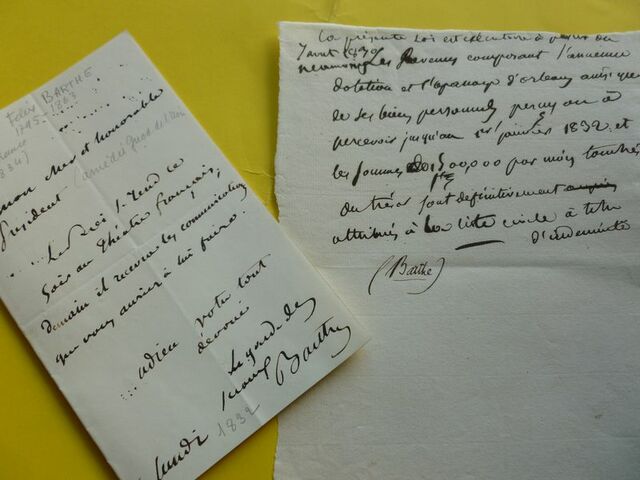 Félix BARTHE
1795-1863
mon cher et honorable
Président
Le Roi se rend ce
soir au théâtre français,
demain il recevra les communications
que vous auriez à lui faire.
adieu votre tout
dévoué
le garde des
sceaux Barthe
lundi 1832
La présente loi est exécutoire à partir du
7 avril
les revenus composant l'ancienne
dotation et l'apanage d'orléans ainsi que
de ses biens personnels perçus ou à
percevoir jusqu'au 1er janvier 1832 et
les sommes de 1500,000 par mois touchés
du trésor sont définitivement
attribués à la liste civile à titre
d'indemnité
(Barthe)